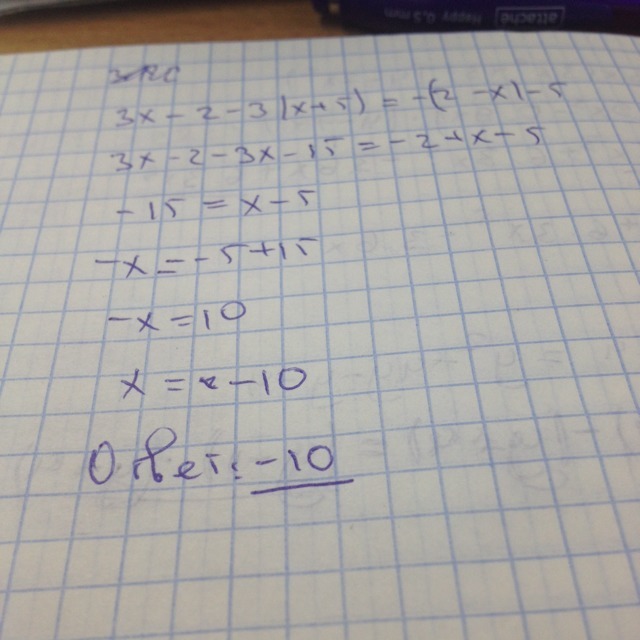 attache
happy 0,5 mm
3x - 2 - 3(x+5) = -(2 - x) - 5
3x - 2 - 3x - 15 = -2 + x - 5
-15 = x - 5
-x = -5 + 15
-x = 10
x = -10
Ответ: -10